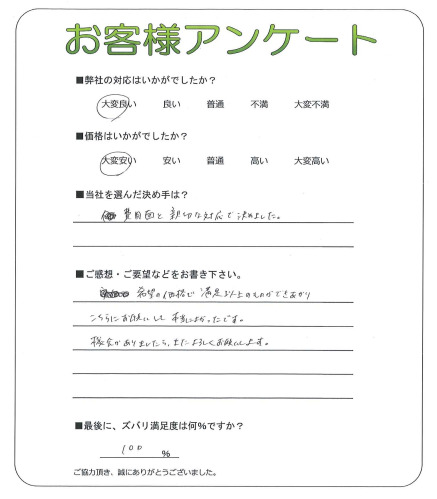 お客様アンケート
■弊社の対応はいかがでしたか？
大変良い 良い 普通 不満 大変不満
■価格はいかがでしたか？
大変安い 安い 普通 高い 大変高い
■当社を選んだ決め手は？
費用面と親切な対応で決めました。
■ご感想・ご要望などをお書き下さい。
希望の価格で満足以上のものができあがり
こちらにお願いして本当によかったです。
機会がありましたら、またよろしくお願いします。
■最後に、ズバリ満足度は何％ですか？
100 ％
ご協力頂き、誠にありがとうございました。